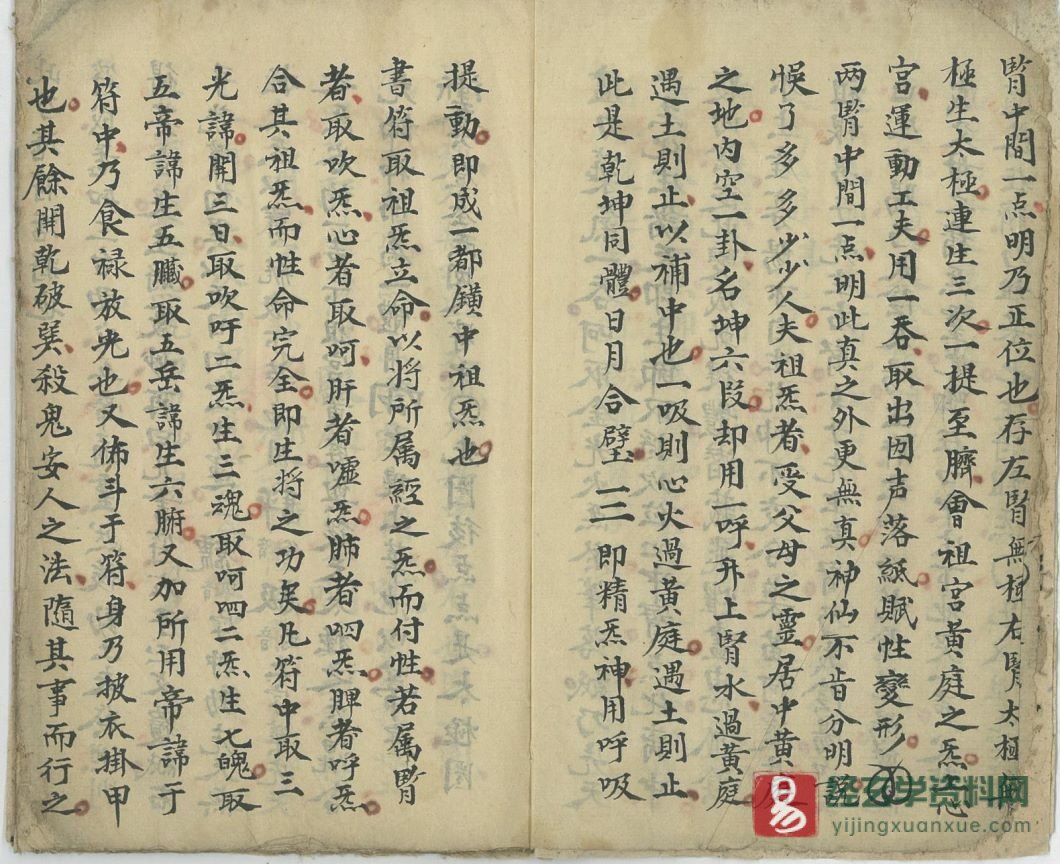 腎中間一点明乃正位也存左腎無極右腎太極
極生太極連生三次一提至臍會祖宮黃庭之炁心
宮運動工夫用一吞取出因声落紙賦性變形
两腎中間一点明此真之外更無真神仙不肯分明說
悮了多多少少人夫祖炁者受父母之靈居中黃庭
之地内空一卦名坤六段却用一呼升上腎水過黃庭
遇土則止以補中也一吸則心火過黃庭遇土則止
此是乾坤同體日月合璧三即精炁神用呼吸
提動即成一都鐄中祖炁也
書符取祖炁立命以將所属經之炁而付性若属腎
者取吹炁心者取呵肝者嘘炁肺者呬炁脾者呼炁
合其祖炁而性命完全即生將之功矣凡符中取三
光諱開三日取吹吁二炁生三魂取呵呬二炁生七魄取
五帝諱生五臟取五岳諱生六腑又加所用帝諱于
符中乃食禄放光也又佈斗于符身乃披衣掛甲
也其餘開乾破巽殺鬼安人之法隨其事而行之
易学资料网
yijingxuanxue.com